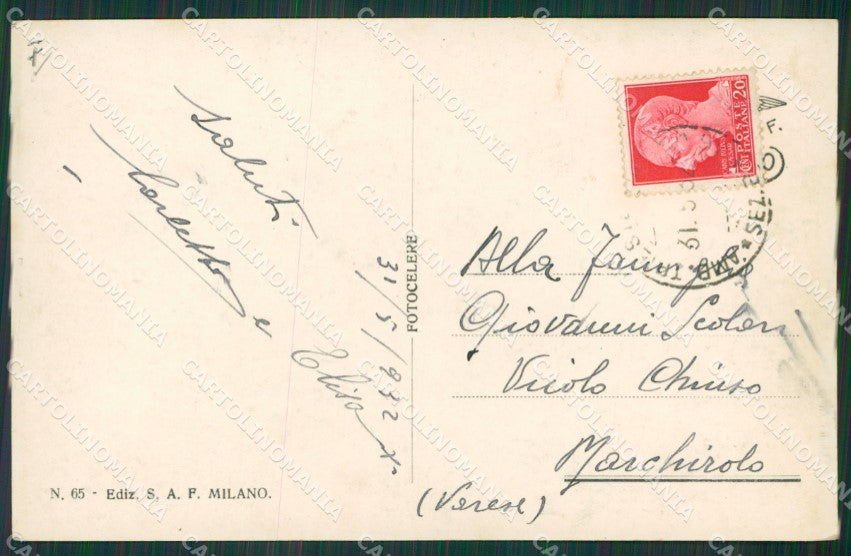 Saluti
Carletto e Elisa
31/5/932 X.
FOTOCELERE
N. 65 - Ediz. S. A. F. MILANO.
POSTE ITALIANE
CENT 20
AMB.
SEZ.
31.5.3
F.
Alla Famiglia
Giovanni Scolari
Vicolo Chiuso
Marchirolo
(Varese)
CARTOLINOMANIA